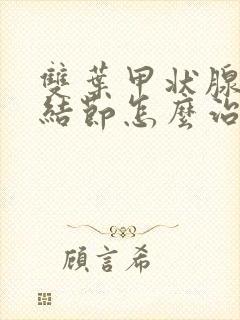 雙葉甲狀腺
結節怎麼治
顧言希